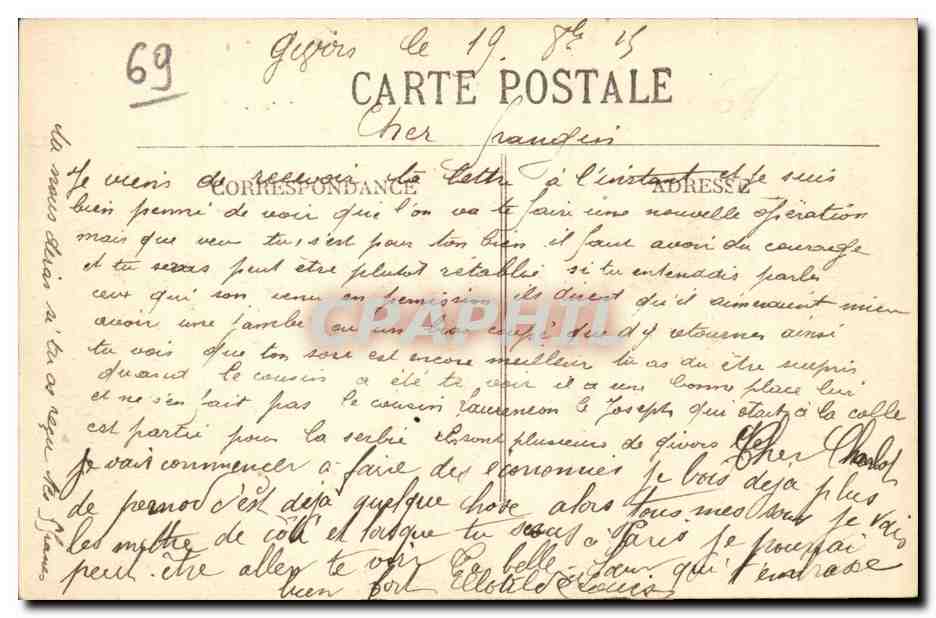 69
Givors le 19 8bre 15
CARTE POSTALE
Cher Grandin
CORRESPONDANCE
ADRESSE
Je viens de recevoir ta lettre à l'instant et je suis
bien penné de voir que l'on va te faire une nouvelle opération
mais que veu tu, s'est pour ton bien il faut avoir du courage
et tu seras peut être plutot rétablie si tu entendais parler
ceux qui son venu en permission ils disent qu'il aimeraient mieu
avoir une jambe ou un bras coupé que d'y retourner ainsi
tu vois que ton sore est encore meilleur tu as du être surpris
quand le cousin a été te voir il a une bonne place lui
et ne s'en fait pas le cousin Laurençon le Joseph qui était à la colle
est partie pour la serbie ils sont plusieurs de givors
Cher Charlot
je vais commencer a faire des économies je bois déja plus
de pernod c'est déja quelque chose alors tous mes sous je vais
les mettre de côté et lorsque tu seras a Paris je pourrai
peut-être aller te voir Ta belle soeur qui t'embrasse
bien fort Clotilde Louis
tu nous diras si tu as reçu les francs
CPAPHIL